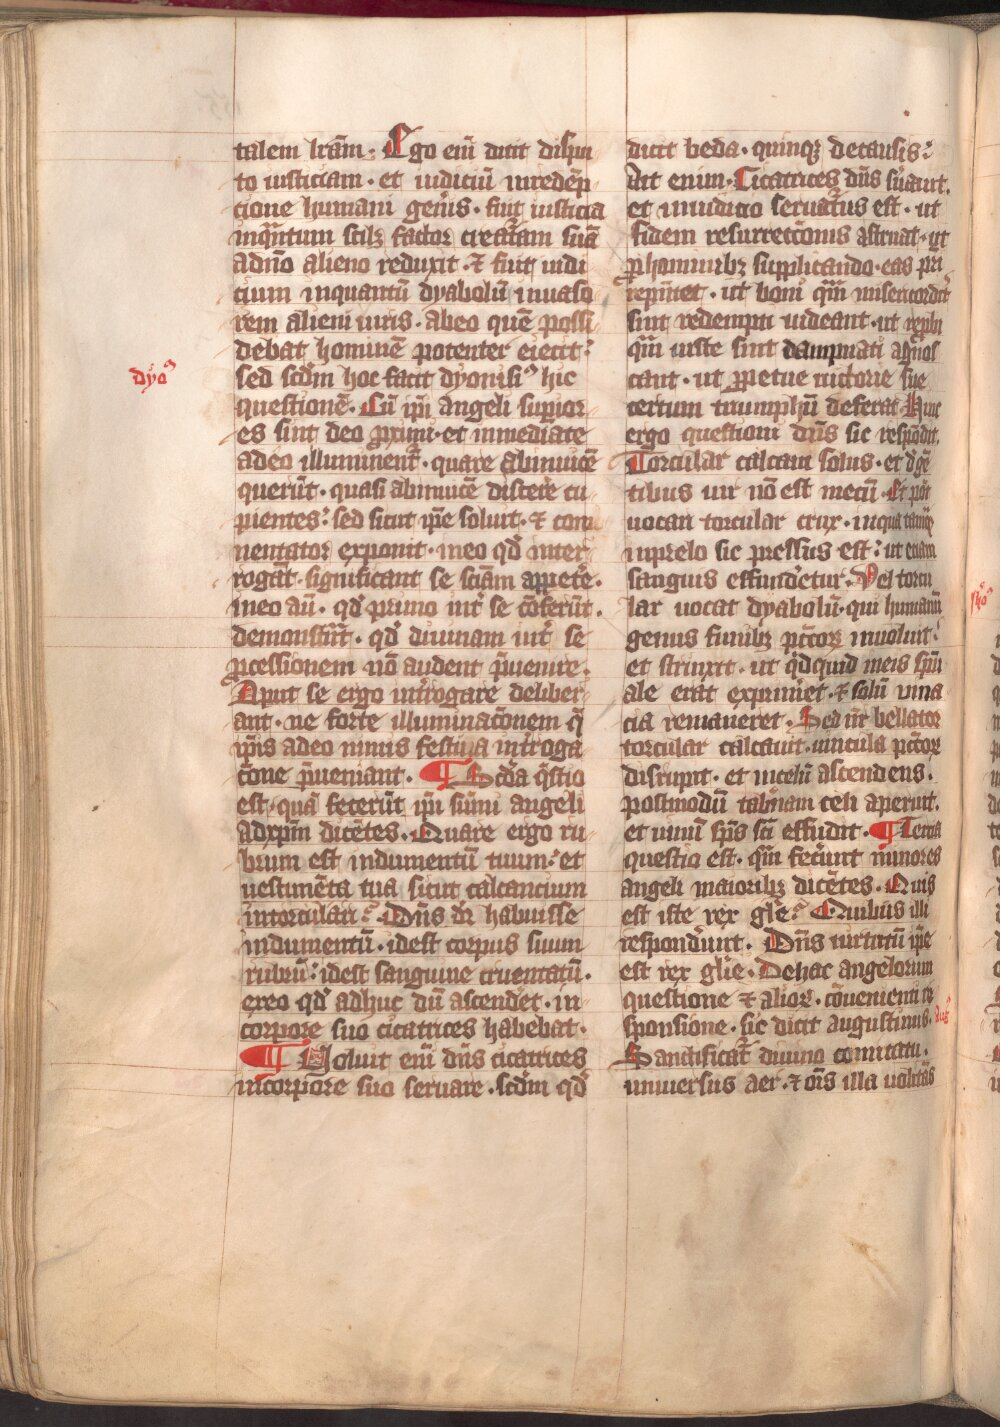 talem lr̄am. Ego em̄ dicit dispu
to iusticiam. et iudiciū inredēp
cione humani gen̄is. fuit iusticia
inqᷓntum scilꝫ factor creat᷑am suā
adn̄o alieno reduxit. ⁊ fuit iudi
cium inquantū dyabolū inuaso
rem alieni iuris. abeo quē possi
debat hominē potenter eiecit.
sed scd̄m hoc facit dyonisiꝰ hic
questionē. Cū ip̄i angeli supior
es sint deo ꝓximi. et inmediate
adeo illuminent᷑. quare abinuicē
querūt. quasi abinuicē discere cu
pientes. sed sicut ip̄e soluit. ⁊ com
mentator exponit. ineo qd̓ inter
rogāt. significant se sciām appetere.
ineo aū. qd̓ primo int̓ se cōferūt.
demonstrāt. qd̓ diuinam int̓ se
ꝓcessionem nō audent p̄uenire.
Aput se ergo int̓rogare deliber
ant. ne forte illuminac̄onem q̄
ip̄is adeo nimis festina int̓roga
c̄one p̄ueniant. ¶ Scd̄a q̄stio
est. quā fecerūt ip̄i sūmi angeli
adxp̄m dicētes. Quare ergo ru
brum est indumentū tuum. et
uestimēta tua sicut calcancium
intorculari. Dn̄s dr̄ habuisse
indumentū. idest corpus suum
rubrū. idest sanguine cruentatū.
exeo qd̓ adhuc dū ascenderet. in
corpore suo cicatrices habebat.
¶ Uoluit em̄ dn̄s cicatrices
incorpore suo seruare. scd̄m qd̓
dyoꝰ
dicit beda. quinqꝫ decausis.
Ait enim. Cicatrices dn̄s s̓uauit.
et iniudicio seruat᷑us est. ut
fidem resurrecc̄onis astruat. ut
ꝓhominibꝫ supplicando. eas pr̄i
rep̄ntet. ut boni qm̄ misericordit̓
sint redempti uideant. ut repbi
qm̄ iuste sint dampnati agnos
cant. ut ꝑpetue uictorie sue
certum triumphū deferat. Huic
ergo questioni dn̄s sic respōdit.
Torcular calcaui solus. et d̓gē
tibus uir nō est mecū. Et pōt
uocari torcular crux. inqua tamqᷓ
inprelo sic pressus est. ut eciam
sanguis effunderetur. Vel torcu
lar uocat dyabolū. qui humanū
genus funibꝫ pcc̄orꝫ inuoluit.
et strinxit. ut qͥdquid ineis spūi
ale erat exprimeret. ⁊ solū uina
cia remaneret. Sed uir bellator
torcular calcauit. uincula pcc̄orꝫ
disrupit. et incelū ascendens.
postmodū tab̓nam celi aperuit.
et uinū sp̄s sc̄i effudit. ¶ Tercia
questio est. qm̄ fecerunt minores
angeli maioribꝫ dicētes. Quis
est iste rex gl̄e. Quibus illi
responderunt. Dn̄s uirtutū ip̄e
est rex gl̄ie. Dehac angelorum
questione ⁊ aliorꝫ. cōuenienti re
sponsione. sic dicit augustinus.
Sanctificat᷑ diuino comitatu.
uniuersus aer. ⁊ om̄s illa uolitās
augꝰ